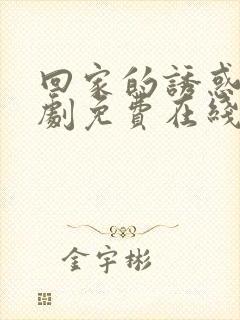 回家的誘惑
劇免費在綫
金宇彬